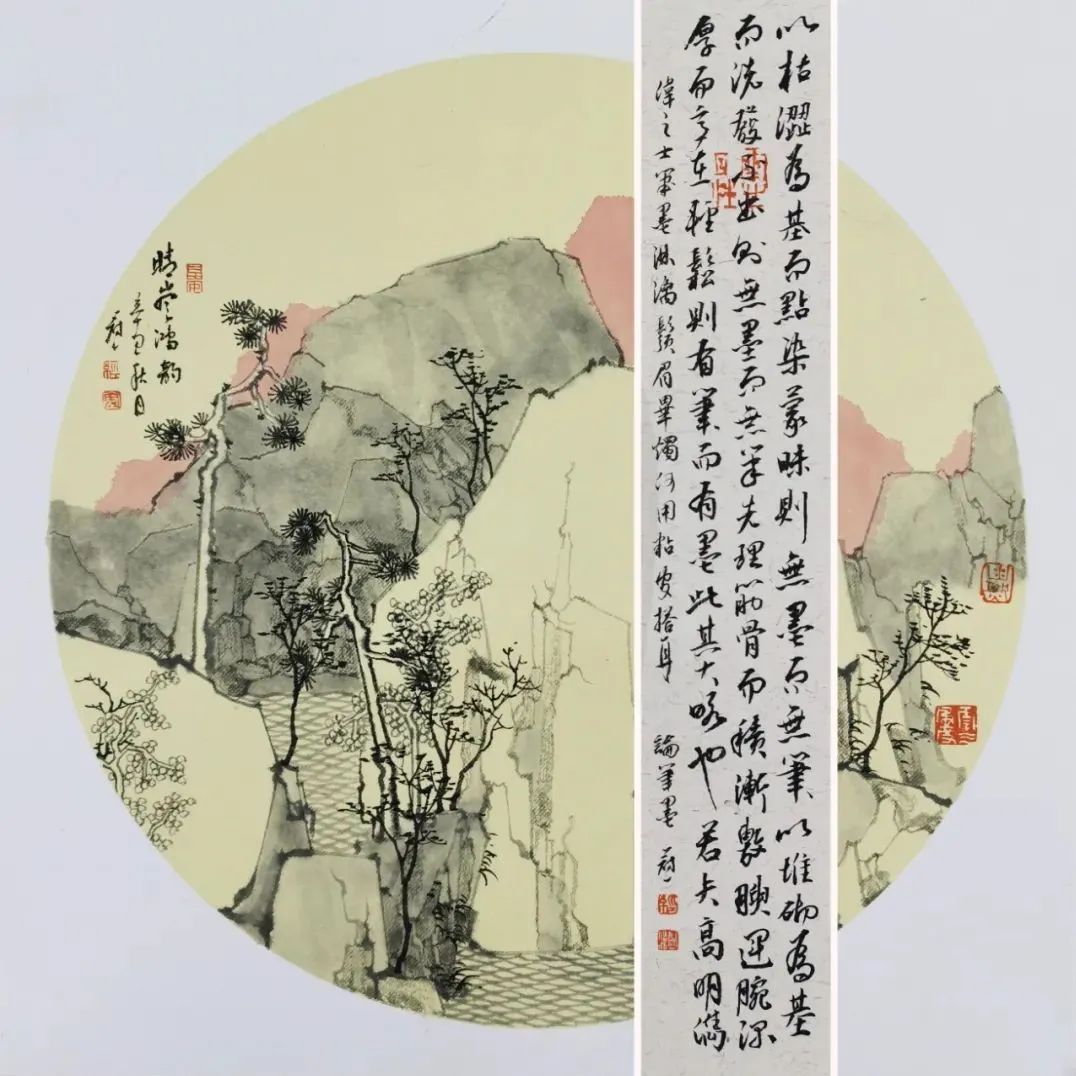 以枯澀為基而點染蒙昧則無墨而無筆以堆砌為基
而洗發不出則無墨而無筆先理筋骨而積漸敷腴運腕深
厚而意在輕鬆則有筆而有墨此其大略也若夫高明雋
偉之士筆墨淋漓鬚眉畢燭何用粘皮搭耳 論筆墨
晴韵
辛丑秋日